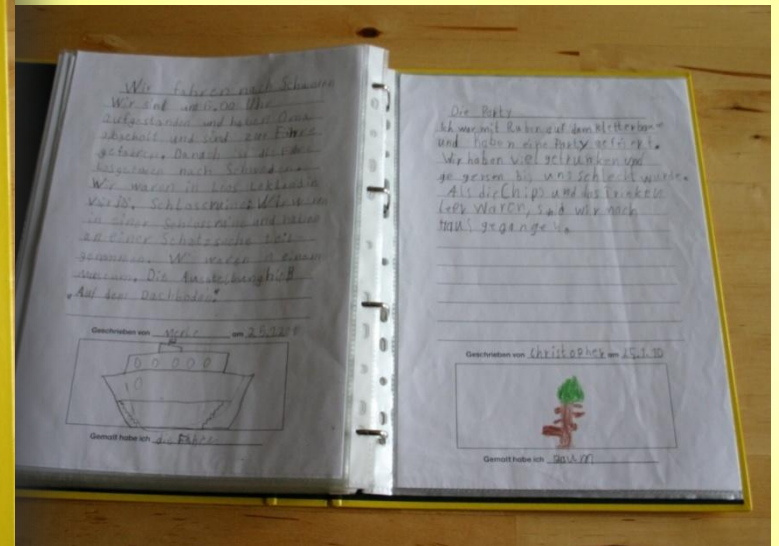 Wir fahren nach Schweden
Wir sind um 6.00 Uhr
aufgestanden und haben Oma
abgeholt und sind zur Fähre
gefahren. Danach ist die
losgefahren nach Schweden.
Wir waren in
Schlossruine Wir waren
in einer Schlossruine und haben
an einer Schatzsuche teil-
genommen. Wir waren in einem
museum. Die Ausstellung hieß
"Auf dem Dachboden"
Geschrieben von am
Gemalt habe ich die Fähre
Die Party
Ich war mit Robin auf dem Kletterbaum
und haben eine Party gefeiert.
Wir haben viel getrunken und
ge gessen bis uns schlecht wurde.
Als die Chips und das Trinken
leer waren, sind wir nach
Haus gegangen.
Geschrieben von Christopher am 29.9.10
Gemalt habe ich Baum